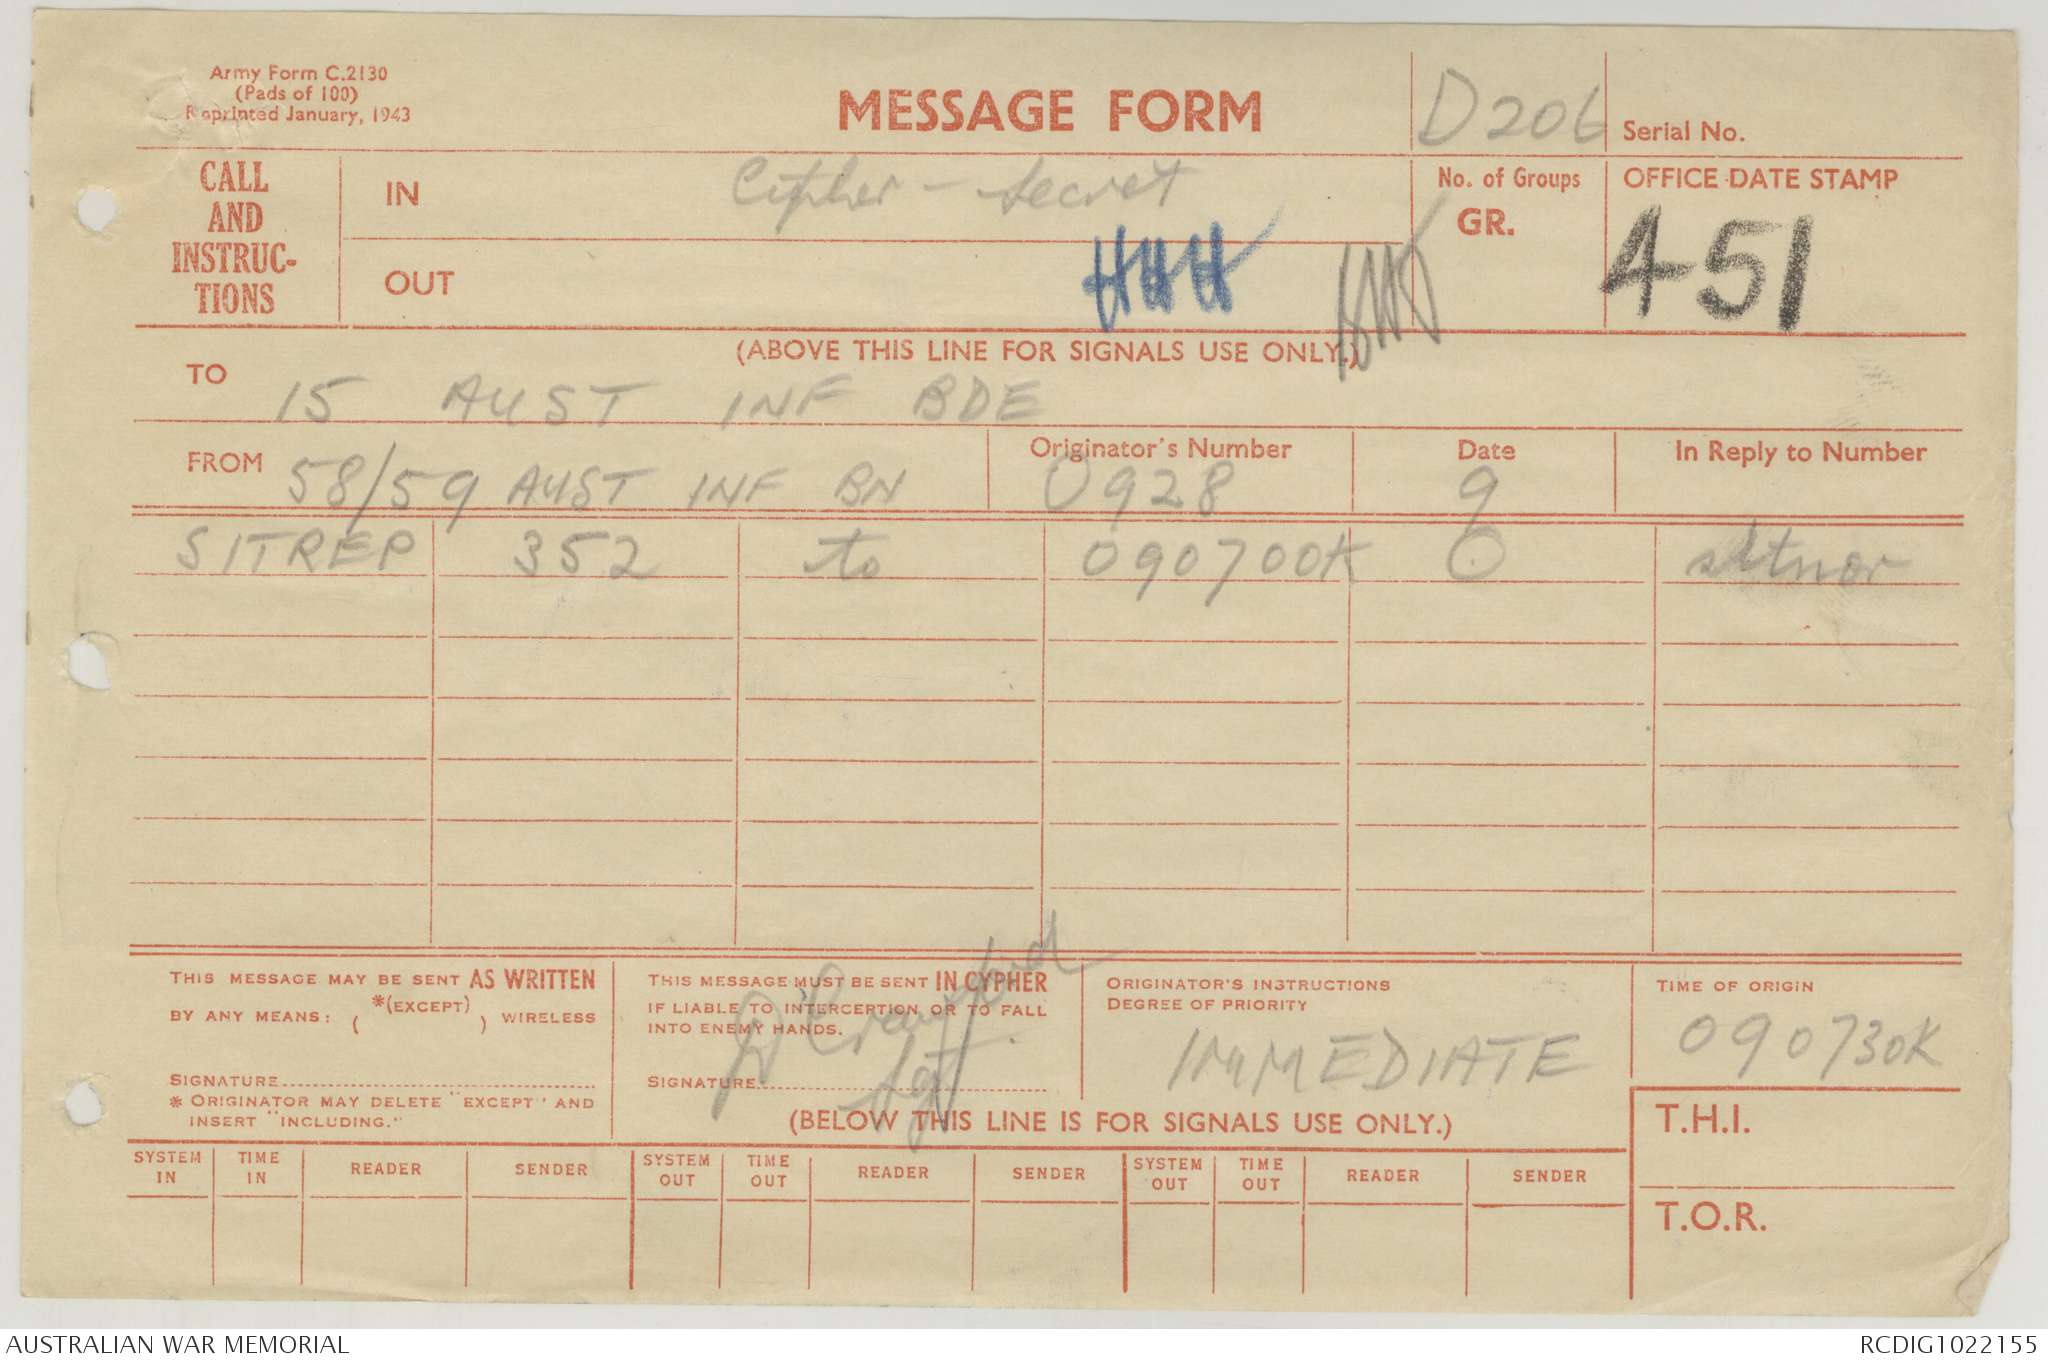 Army Form C.2130
(Pads of 100)
Reprinted January, 1943
MESSAGE FORM
D206
Serial No.
CALL
AND
INSTRUC-
TIONS
IN
Cipher - Secret
No. of Groups
GR.
OFFICE DATE STAMP
451
OUT
(ABOVE THIS LINE FOR SIGNALS USE ONLY.)
TO 15 AUST INF BDE
FROM 58/59 AUST INF BN
Originator's Number
0928
Date
9
In Reply to Number
SITREP 352 to 090700K O sitnor
THIS MESSAGE MAY BE SENT AS WRITTEN
BY ANY MEANS: ( *(EXCEPT) ) WIRELESS
SIGNATURE
* ORIGINATOR MAY DELETE "EXCEPT" AND
INSERT "INCLUDING."
THIS MESSAGE MUST BE SENT IN CYPHER
IF LIABLE TO INTERCEPTION OR TO FALL
INTO ENEMY HANDS.
Crawford
Sgt
SIGNATURE
ORIGINATOR'S INSTRUCTIONS
DEGREE OF PRIORITY
IMMEDIATE
TIME OF ORIGIN
090730K
(BELOW THIS LINE IS FOR SIGNALS USE ONLY.)
T.H.I.
SYSTEM IN
TIME IN
READER
SENDER
SYSTEM OUT
TIME OUT
READER
SENDER
SYSTEM OUT
TIME OUT
READER
SENDER
T.O.R.
AUSTRALIAN WAR MEMORIAL
RCDIG1022155